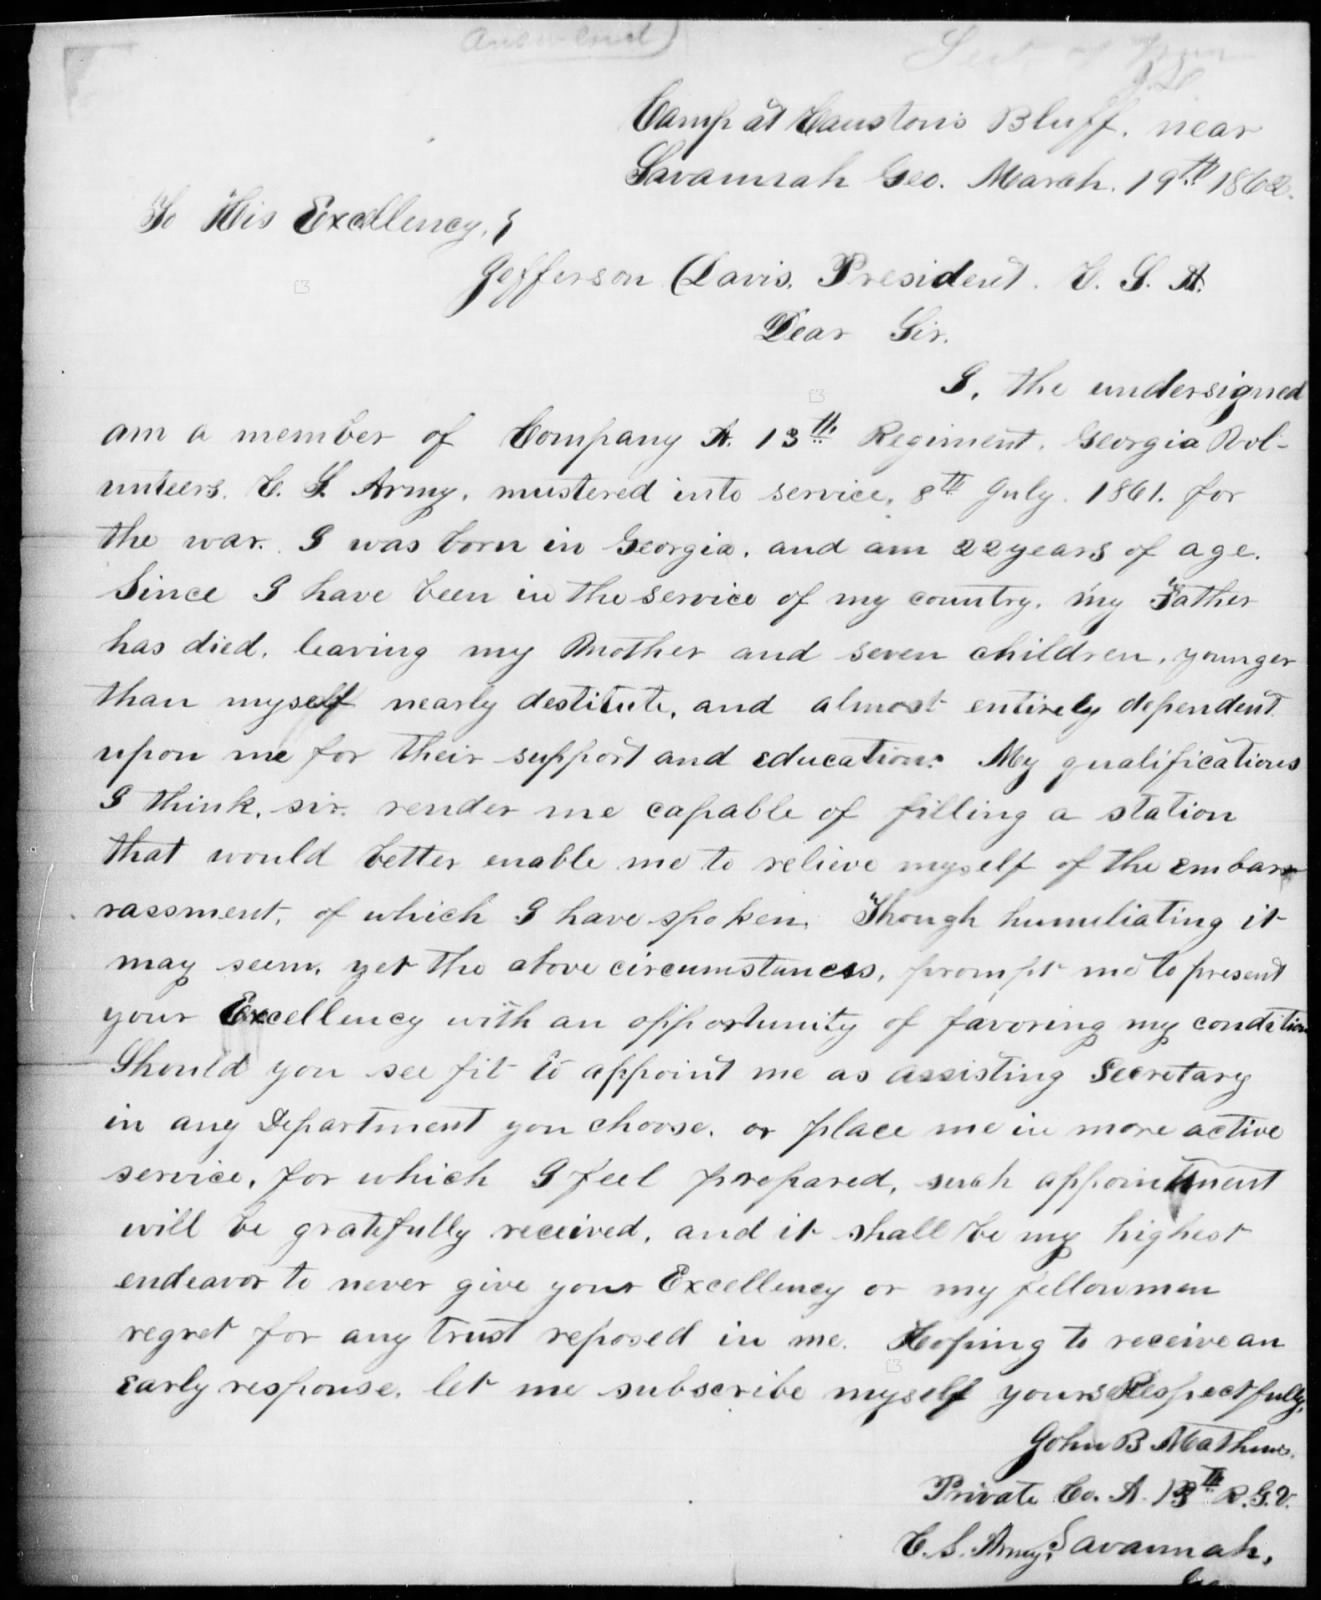 Answered)
Sect of War
J. D.
Camp at Causton's Bluff, near
Savannah Geo. March. 19th 1862.
To His Excellency, }
Jefferson Davis, President. C. S. A.
Dear Sir.
I, the undersigned
am a member of Company A. 13th Regiment, Georgia Vol-
unteers, C. S. Army, mustered into service, 8th July, 1861. for
the war. I was born in Georgia, and am 22 years of age.
Since I have been in the service of my country, my Father
has died, leaving my Mother and seven children, younger
than myself nearly destitute, and almost entirely dependent
upon me for their support and education. My qualifications
I think, sir, render me capable of filling a station
that would better enable me to relieve myself of the embar-
rassment, of which I have spoken. Though humiliating it
may seem, yet the above circumstances, prompt me to present
your Excellency with an opportunity of favoring my condition
Should you see fit to appoint me as assisting Secretary
in any Department you choose, or place me in more active
service, for which I feel prepared, such appointment
will be gratefully received, and it shall be my highest
endeavor to never give your Excellency or my fellowmen
regret for any trust reposed in me. Hoping to receive an
early response, let me subscribe myself yours Respectfully,
John B Mathews.
Private Co. A. 13th R. G. V.
C. S. Army, Savannah,
Geo